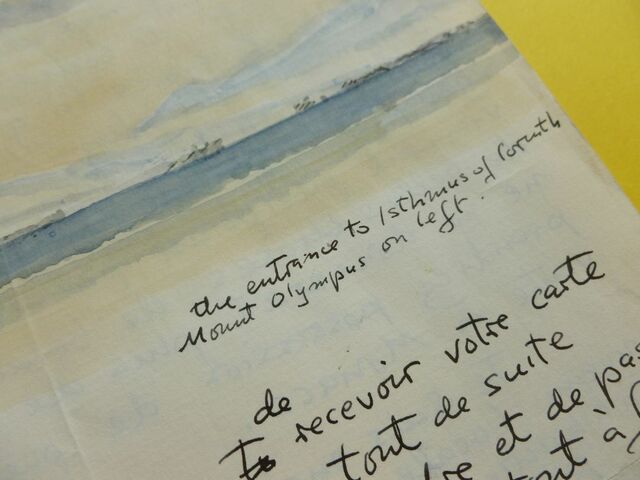 the entrance to Isthmus of Corinth
Mount Olympus on left.
de
recevoir votre carte
tout de suite
et de pas
à